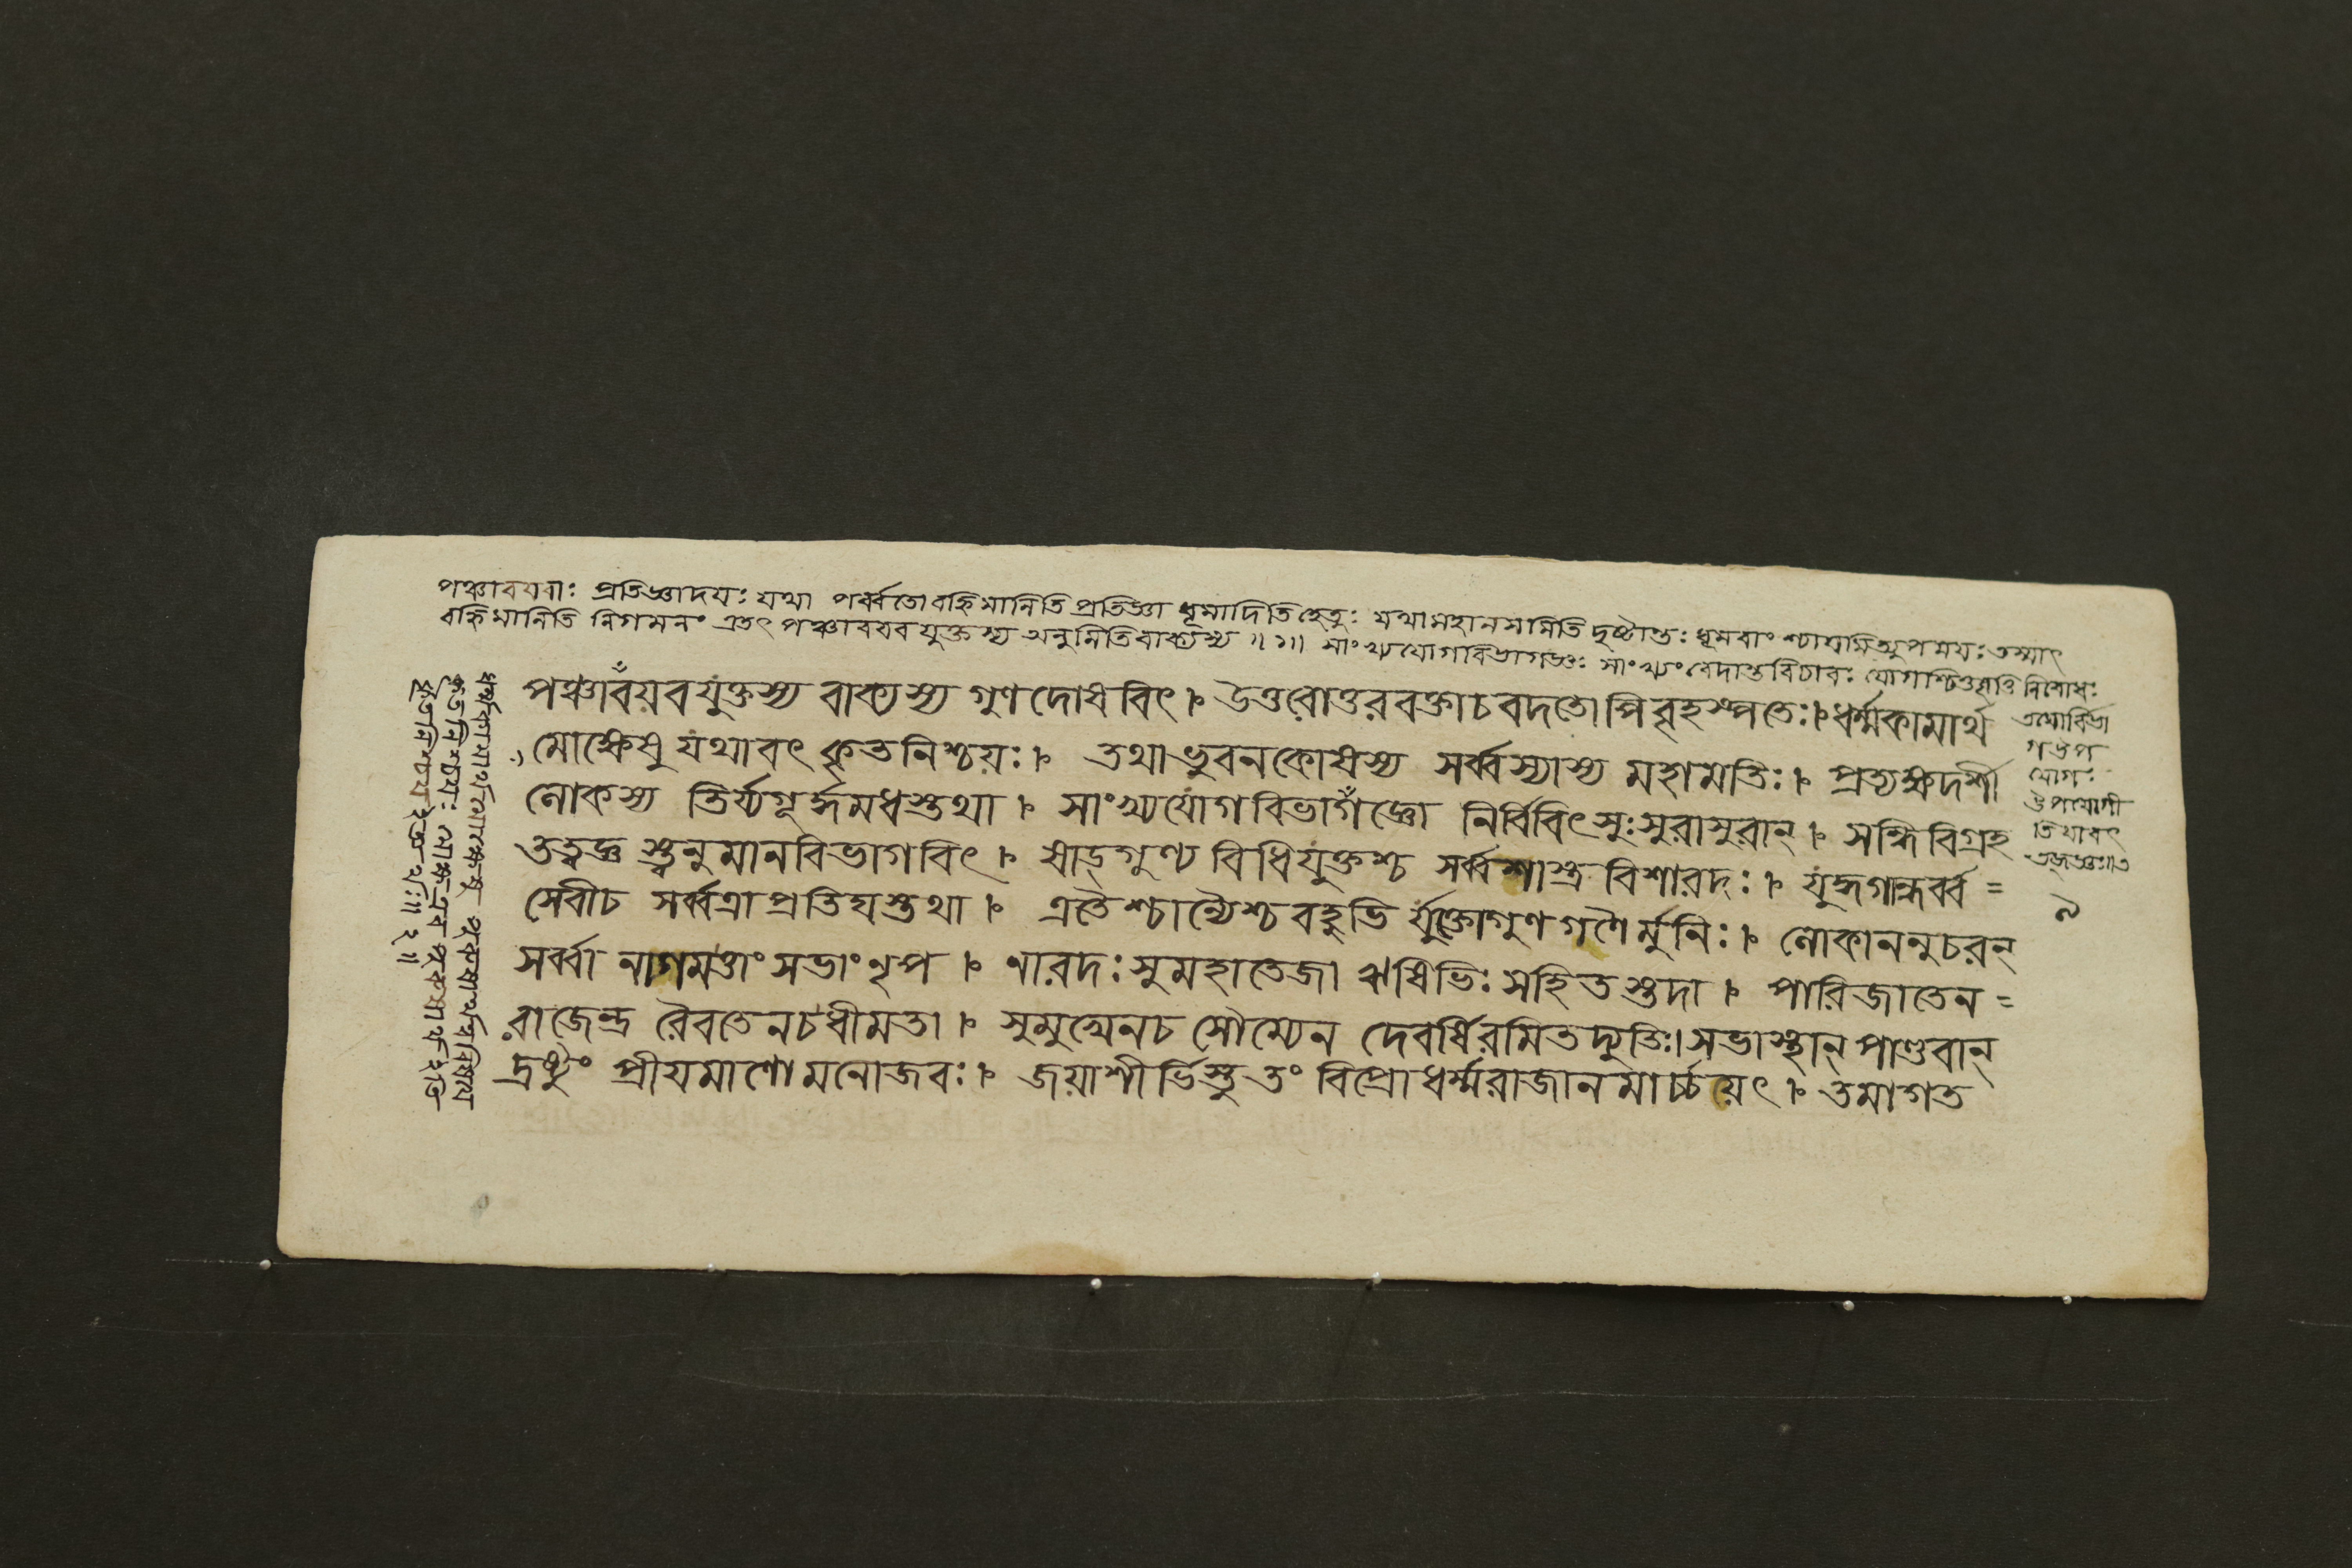 পঞ্চাবযবাঃ প্রতিজ্ঞাদযঃ যথা পর্ব্বতো বহ্নিমানিতি প্রতিজ্ঞা ধূমাদিতি হেতুঃ যথা মহানসমিতি দৃষ্টান্তঃ ধূমবাংশ্চাযমিত্যুপনযঃ তস্মাৎ
বহ্নিমানিতি নিগমনং এতৎ পঞ্চাবযবযুক্তস্য অনুমিতিবাক্যস্য ॥১॥ সাংখ্যযোগবিভাগজ্ঞঃ সাংখ্যং বেদান্তবিচারঃ যোগশ্চিত্তবৃত্তিনিরোধঃ
তযোর্বিভা
গ উপ
যোগঃ
উপযোগী
তি যাবৎ
তজ্জ্ঞঃ॥৩
পঞ্চাবয়বযুক্তস্য বাক্যস্য গুণদোষবিৎ । উত্তরোত্তরবক্তাচ বদতোপি বৃহস্পতেঃ। ধর্ম্মকামার্থ
মোক্ষেষু যথাবৎ কৃতনিশ্চয়ঃ । তথা ভুবনকোষস্য সর্ব্বস্যাস্য মহামতিঃ । প্রত্যক্ষদর্শী
লোকস্য তির্য্যগূর্দ্ধমধস্তথা । সাংখ্যযোগবিভাগজ্ঞো নির্বিবিৎসুঃ সুরাসুরান্ । সন্ধিবিগ্রহ
তত্ত্বজ্ঞ স্ত্বনুমানবিভাগবিৎ । ষাড়্গুণ্য বিধিযুক্তশ্চ সর্ব্বশাস্ত্র বিশারদঃ । যুদ্ধগান্ধর্ব্ব =
সেবীচ সর্ব্বত্রাপ্রতিঘস্তথা । এতৈশ্চান্যৈশ্চ বহুভি র্যুক্তো গুণগণৈর্মুনিঃ । লোকাননুচরন্
৯
সর্ব্বা নাগমত্তাং সভাং নৃপ । নারদঃ সুমহাতেজা ঋষিভিঃ সহিতস্তদা । পারিজাতেন =
রাজেন্দ্র রৈবতেনচ ধীমতা । সুমুখেনচ সৌম্যেন দেবর্ষিরমিতদ্যুতিঃ। সভাস্থান্ পাণ্ডবান্
দ্রষ্টুং প্রীযমাণো মনোজবঃ । জয়াশীর্ভিস্তু তং বিপ্রো ধর্ম্মরাজানমার্চ্চয়েৎ । তমাগত